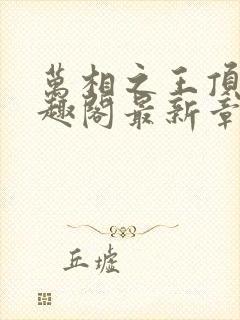 萬相之王頂
趣閣最新章
丘墟